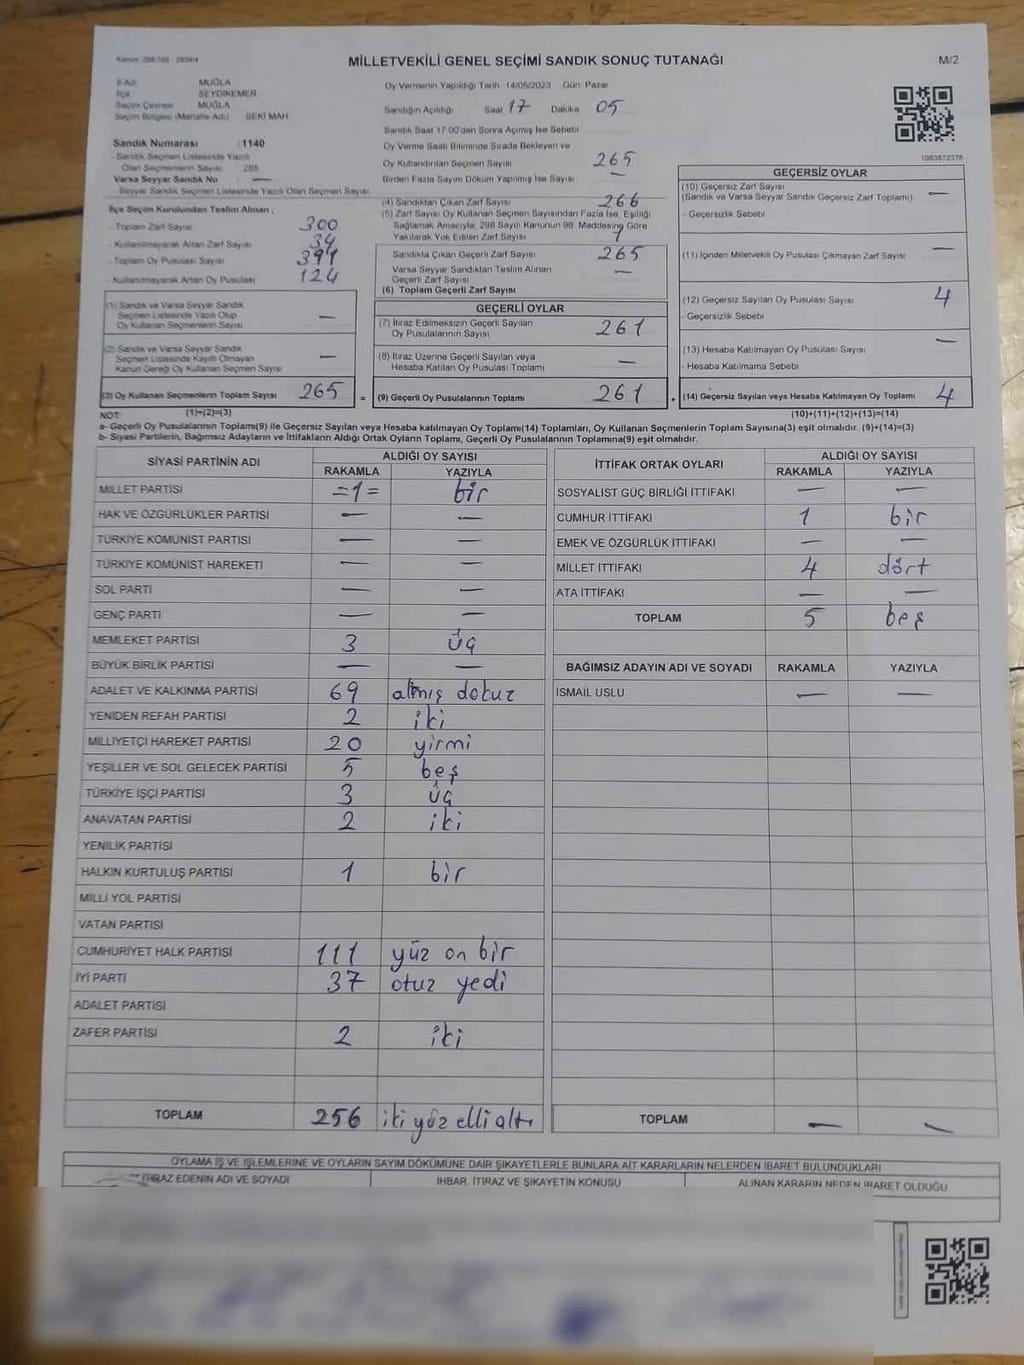 MİLLETVEKİLİ GENEL SEÇİMİ SANDIK SONUÇ TUTANAĞI
M/2
İl Adı MUĞLA
İlçe SEYDİKEMER
Seçim Çevresi MUĞLA
Seçim Bölgesi (Mahalle Adı) SEKİ MAH.
Sandık Numarası :1140
- Sandık Seçmen Listesinde Yazılı
Olan Seçmenlerin Sayısı 285
Varsa Seyyar Sandık No : —
- Seyyar Sandık Seçmen Listesinde Yazılı Olan Seçmen Sayısı
İlçe Seçim Kurulundan Teslim Alınan ;
- Toplam Zarf Sayısı 300
- Kullanılmayarak Artan Zarf Sayısı 34
- Toplam Oy Pusulası Sayısı
- Kullanılmayarak Artan Oy Pusulası 124
(1) Sandık ve Varsa Seyyar Sandık
Seçmen Listesinde Yazılı Olup
Oy Kullanan Seçmenlerin Sayısı —
(2) Sandık ve Varsa Seyyar Sandık
Seçmen Listesinde Kayıtlı Olmayan
Kanun Gereği Oy Kullanan Seçmen Sayısı —
(3) Oy Kullanan Seçmenlerin Toplam Sayısı 265
(1)+(2)=(3)
Oy Vermenin Yapıldığı Tarih 14/05/2023 Gün Pazar
Sandığın Açıldığı Saat 17 Dakika 05
Sandık Saat 17:00'den Sonra Açımış İse Sebebi
Oy Verme Saati Bitiminde Sırada Bekleyen ve
Oy Kullandırılan Seçmen Sayısı 265
Birden Fazla Sayım Döküm Yapılmış İse Sayısı —
(4) Sandıktan Çıkan Zarf Sayısı 266
(5) Zarf Sayısı Oy Kullanan Seçmen Sayısından Fazla İse, Eşitliği
Sağlamak Amacıyla, 298 Sayılı Kanunun 98. Maddesine Göre
Yakılarak Yok Edilen Zarf Sayısı 1
Sandıkta Çıkan Geçerli Zarf Sayısı 265
Varsa Seyyar Sandıktan Teslim Alınan
Geçerli Zarf Sayısı —
(6) Toplam Geçerli Zarf Sayısı
GEÇERLİ OYLAR
(7) İtiraz Edilmeksizin Geçerli Sayılan
Oy Pusulalarının Sayısı 261
(8) İtiraz Üzerine Geçerli Sayılan veya
Hesaba Katılan Oy Pusulası Toplamı —
= (9) Geçerli Oy Pusulalarının Toplamı 261
1083872378
GEÇERSİZ OYLAR
(10) Geçersiz Zarf Sayısı
(Sandık ve Varsa Seyyar Sandık Geçersiz Zarf Toplamı) —
- Geçersizlik Sebebi
(11) İçinden Milletvekili Oy Pusulası Çıkmayan Zarf Sayısı —
(12) Geçersiz Sayılan Oy Pusulası Sayısı 4
- Geçersizlik Sebebi
(13) Hesaba Katılmayan Oy Pusulası Sayısı —
- Hesaba Katılmama Sebebi
+ (14) Geçersiz Sayılan veya Hesaba Katılmayan Oy Toplamı 4
(10)+(11)+(12)+(13)=(14)
NOT:
a- Geçerli Oy Pusulalarının Toplamı(9) ile Geçersiz Sayılan veya Hesaba katılmayan Oy Toplamı(14) Toplamları, Oy Kullanan Seçmenlerin Toplam Sayısına(3) eşit olmalıdır. (9)+(14)=(3)
b- Siyasi Partilerin, Bağımsız Adayların ve İttifakların Aldığı Ortak Oyların Toplamı, Geçerli Oy Pusulalarının Toplamına(9) eşit olmalıdır.
SİYASİ PARTİNİN ADI ALDIĞI OY SAYISI
RAKAMLA YAZIYLA
MİLLET PARTİSİ =1= bir
HAK VE ÖZGÜRLÜKLER PARTİSİ — —
TÜRKİYE KOMÜNİST PARTİSİ — —
TÜRKİYE KOMÜNİST HAREKETİ — —
SOL PARTİ — —
GENÇ PARTİ — —
MEMLEKET PARTİSİ 3 üç
BÜYÜK BİRLİK PARTİSİ — —
ADALET VE KALKINMA PARTİSİ 69 altmış dokuz
YENİDEN REFAH PARTİSİ 2 iki
MİLLİYETÇİ HAREKET PARTİSİ 20 yirmi
YEŞİLLER VE SOL GELECEK PARTİSİ 5 beş
TÜRKİYE İŞÇİ PARTİSİ 3 üç
ANAVATAN PARTİSİ 2 iki
YENİLİK PARTİSİ
HALKIN KURTULUŞ PARTİSİ 1 bir
MİLLİ YOL PARTİSİ
VATAN PARTİSİ
CUMHURİYET HALK PARTİSİ 111 yüz on bir
İYİ PARTİ 37 otuz yedi
ADALET PARTİSİ
ZAFER PARTİSİ 2 iki
TOPLAM 256 iki yüz elli altı
İTTİFAK ORTAK OYLARI ALDIĞI OY SAYISI
RAKAMLA YAZIYLA
SOSYALİST GÜÇ BİRLİĞİ İTTİFAKI — —
CUMHUR İTTİFAKI 1 bir
EMEK VE ÖZGÜRLÜK İTTİFAKI — —
MİLLET İTTİFAKI 4 dört
ATA İTTİFAKI — —
TOPLAM 5 beş
BAĞIMSIZ ADAYIN ADI VE SOYADI RAKAMLA YAZIYLA
İSMAİL USLU — —
TOPLAM — —
OYLAMA İŞ VE İŞLEMLERİNE VE OYLARIN SAYIM DÖKÜMÜNE DAİR ŞİKAYETLERLE BUNLARA AİT KARARLARIN NELERDEN İBARET BULUNDUKLARI
İTİRAZ EDENİN ADI VE SOYADI
İHBAR, İTİRAZ VE ŞİKAYETİN KONUSU
ALINAN KARARIN NEDEN İBARET OLDUĞU